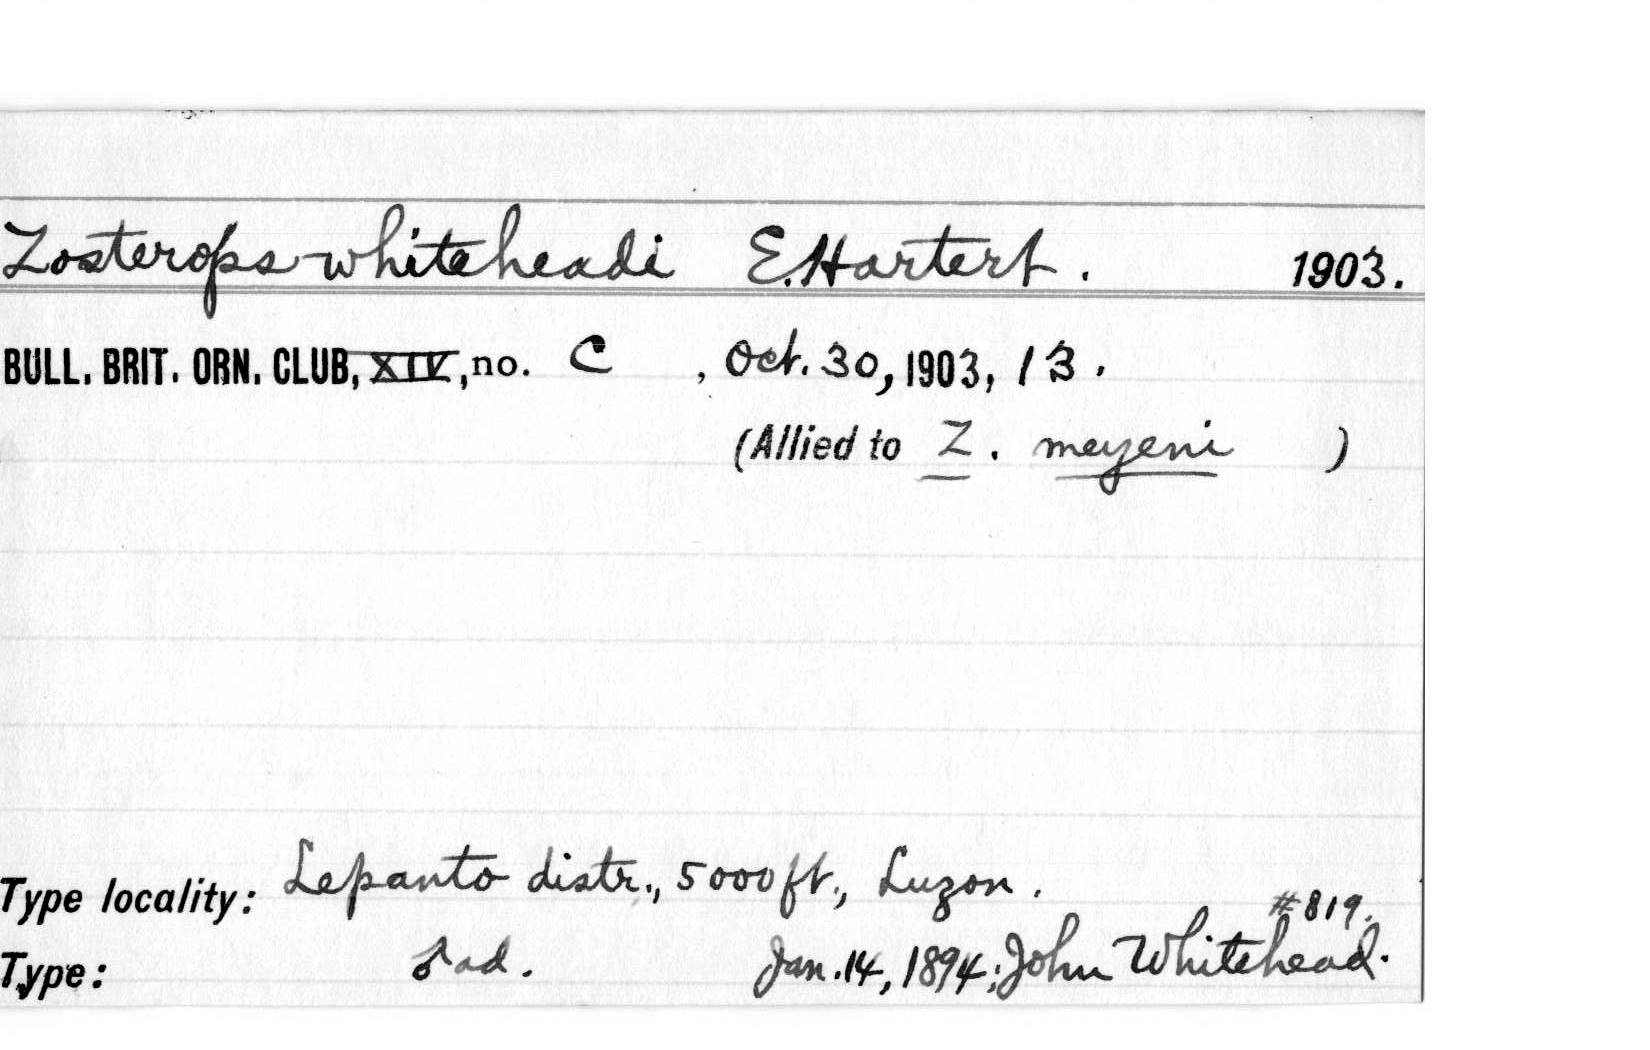 Zosterops whiteheadi E. Hartert. 1903.
BULL. BRIT. ORN. CLUB, XIV, no. C , Oct. 30, 1903, 13.
(Allied to Z. meyeni )
Type locality: Lepanto distr., 5000 ft., Luzon.
#819.
Type: ♂ ad. Jan. 14, 1894; John Whitehead.